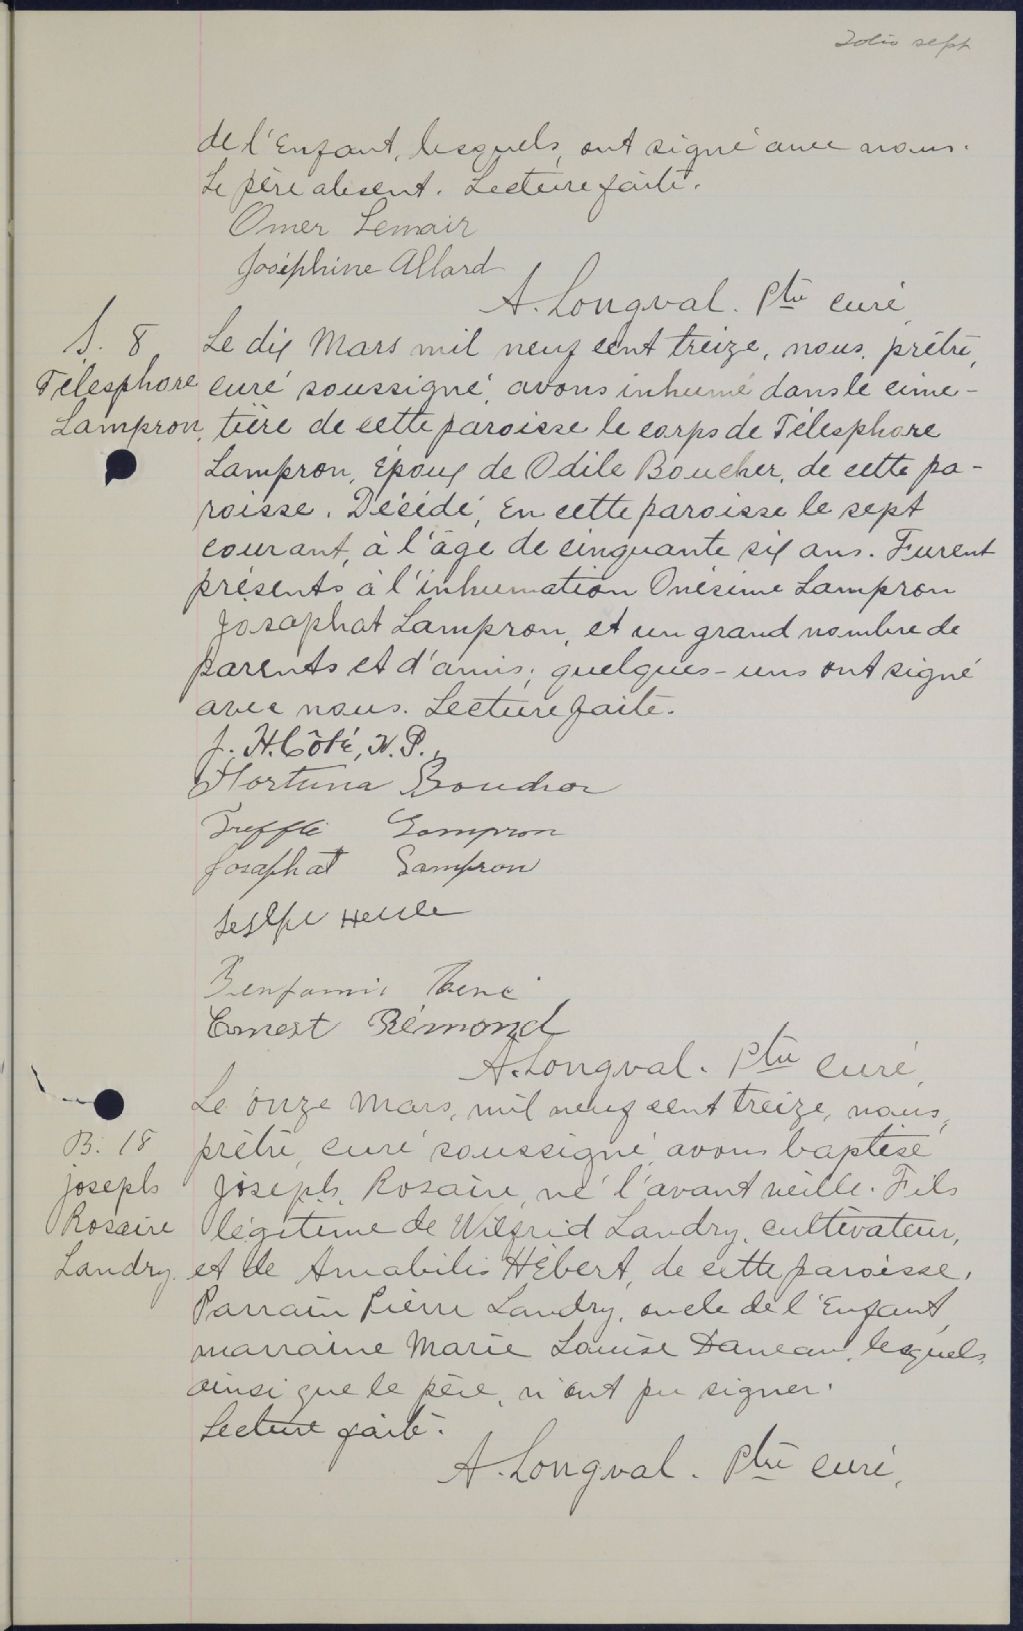 Folio sept
de l'Enfant, lesquels, ont signé avec nous.
Le père absent. Lecture faite.
Omer Lemair
Joséphine Allard
A. Longval. Ptre curé
S. 8
Télesphore
Lampron,
Le dix Mars mil neuf cent treize, nous, prêtre,
curé soussigné, avons inhumé dans le cime-
tière de cette paroisse le corps de Télesphore
Lampron, Époux de Odile Boucher, de cette pa-
roisse. Décédé, En cette paroisse le sept
courant, à l'âge de cinquante six ans. Furent
présents à l'inhumation Onésime Lampron
Josaphat Lampron, et un grand nombre de
parents et d'amis; quelques-uns ont signé
avec nous. Lecture faite.
J. H. Côté, N. P.,
Boucher
Trefflé Lampron
Josaphat Lampron
Benjamin
Ernest Rémond
A. Longval. Ptre curé,
B. 18
joseph
Rosaire
Landry
Le onze Mars, mil neuf cent treize, nous,
prêtre, curé soussigné, avons baptisé
joseph, Rosaire, né l'avant veille. Fils
légitime de Wilfrid Landry, cultivateur,
et de Amabilis Hébert, de cette paroisse.
Parrain Pierre Landry, oncle de l'Enfant,
marraine Marie Louise Daneau, lesquels,
ainsi que le père, n'ont pu signer.
Lecture faite.
A. Longval. Ptre curé,